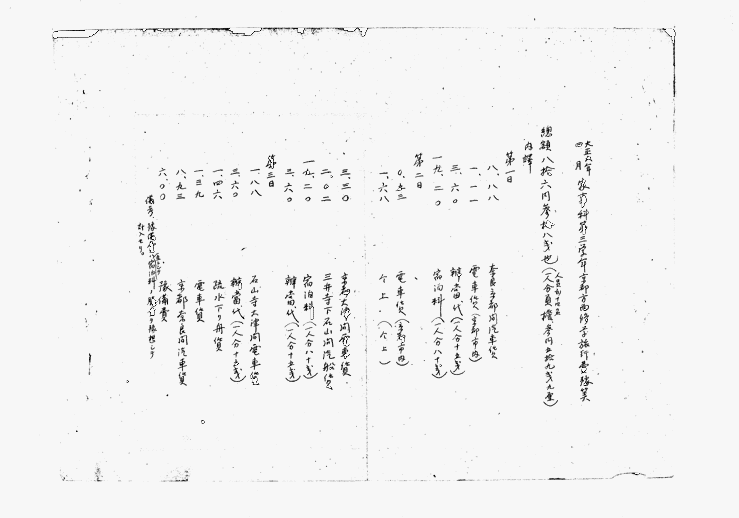 大正九年四月 家事科第三学年京都方面修学旅行費予算
総額八拾六円参拾八銭也(一人分負担参円五拾九銭九厘)
内訳
第一日
八、八八 奈良京都間汽車賃
一、一一 電車賃(京都市内)
三、六〇 辨当代(一人分十五銭)
一九、二〇 宿泊料(一人分八十銭)
第二日
〇、五三 電車賃(京都市内)
一、六八 仝上(仝上)
三、三〇 京都大津間電車賃
二、〇二 三井寺下石山間汽船賃
一九、二〇 宿泊料(一人分八十銭)
三、六〇 辨当代(一人分十五銭)
第三日
一、八八 石山寺大津間電車賃
三、六〇 辨当代(一人分十五銭)
一、四六 疏水下リ舟賃
一、三九 電車賃
八、九三 京都奈良間汽車賃
六、〇〇 予備費
備考